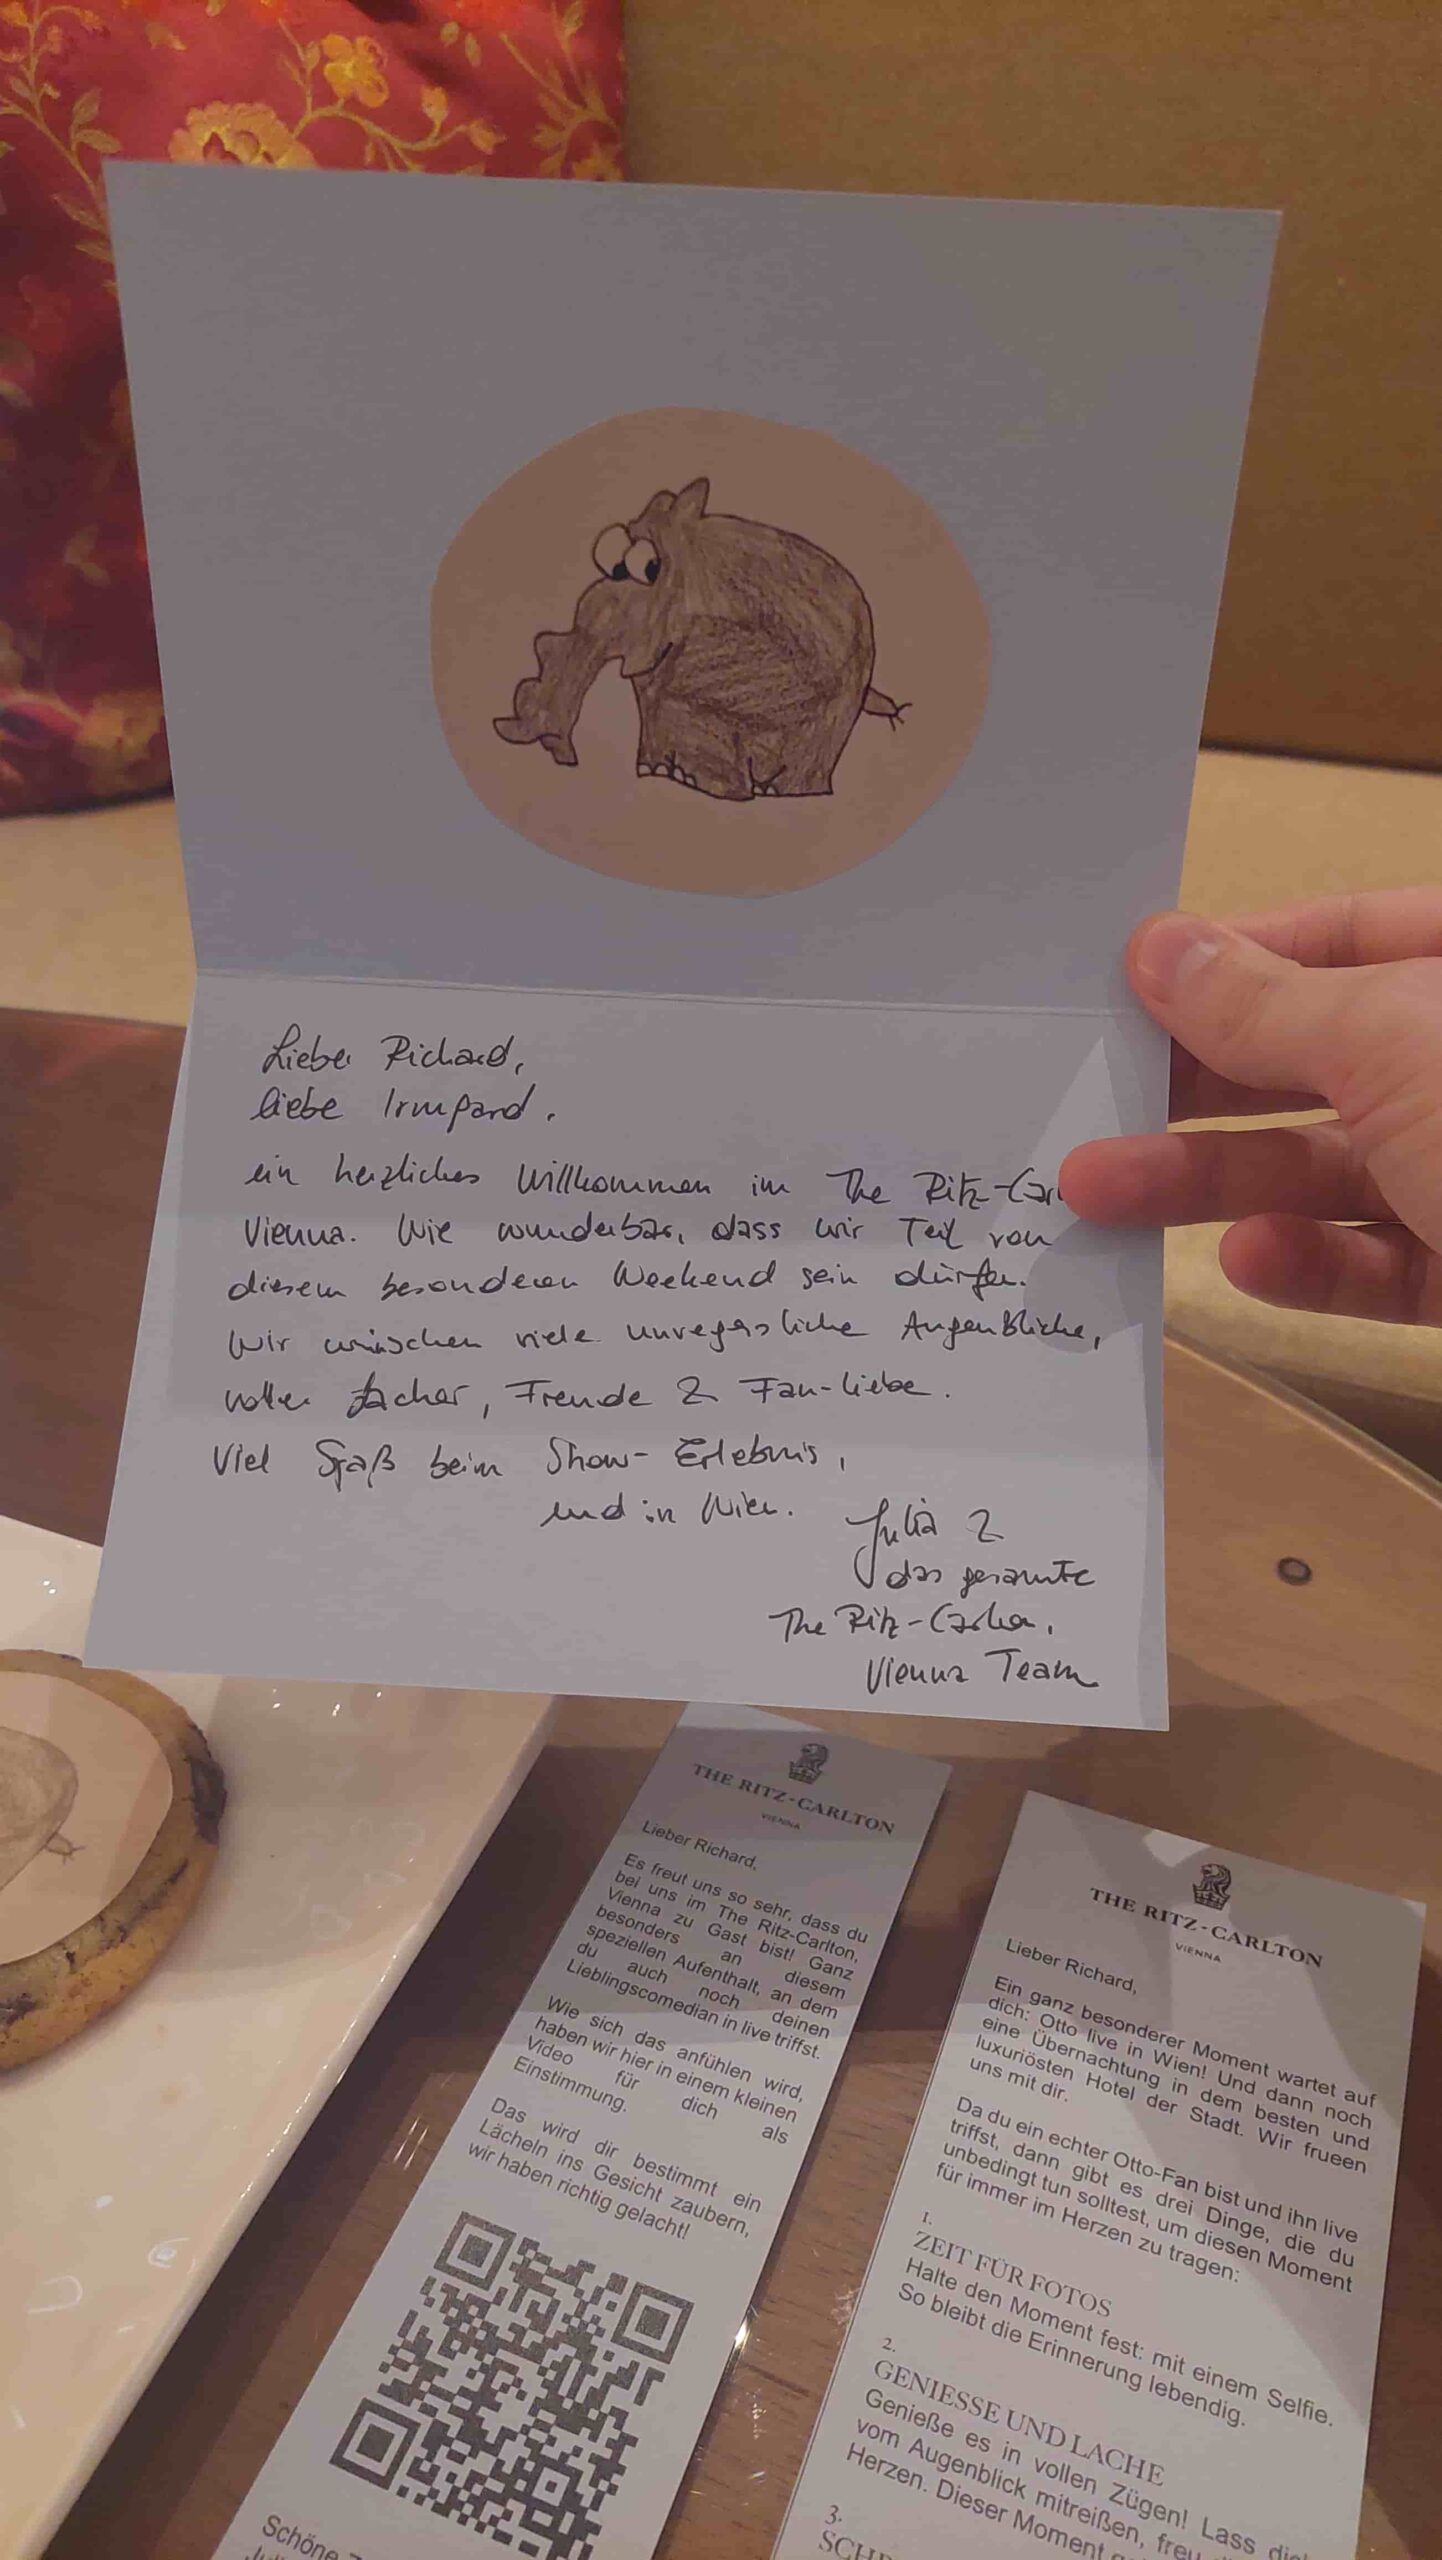 Lieber Richard,
liebe Irmgard,
ein herzliches Willkommen im The Ritz-Carl
Vienna. Wie wunderbar, dass wir Teil von
diesem besonderen Weekend sein dürfen.
Wir wünschen viele unvergessliche Augenblicke,
voller Lacher, Freude & Fan-Liebe.
Viel Spaß beim Show-Erlebnis,
und in Wien.
Julia &
das gesamte
The Ritz-Carlton,
Vienna Team
THE RITZ-CARLTON
VIENNA
Lieber Richard,
Es freut uns so sehr, dass du
bei uns im The Ritz-Carlton,
Vienna zu Gast bist! Ganz
besonders an diesem
speziellen Aufenthalt, an dem
du auch noch deinen
Lieblingscomedian in live triffst.
Wie sich das anfühlen wird,
haben wir hier in einem kleinen
Video für dich als
Einstimmung.
Das wird dir bestimmt ein
Lächeln ins Gesicht zaubern,
wir haben richtig gelacht!
Schöne
THE RITZ-CARLTON
VIENNA
Lieber Richard,
Ein ganz besonderer Moment wartet auf
dich: Otto live in Wien! Und dann noch
eine Übernachtung in dem besten und
luxuriösten Hotel der Stadt. Wir frueen
uns mit dir.
Da du ein echter Otto-Fan bist und ihn live
triffst, dann gibt es drei Dinge, die du
unbedingt tun solltest, um diesen Moment
für immer im Herzen zu tragen:
1.
ZEIT FÜR FOTOS
Halte den Moment fest: mit einem Selfie.
So bleibt die Erinnerung lebendig.
2.
GENIESSE UND LACHE
Genieße es in vollen Zügen! Lass dich
vom Augenblick mitreißen, freu
Herzen. Dieser Moment
3.